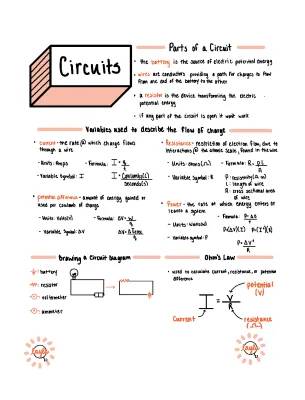 Circuits
Parts of a Circuit
• the battery is the source of electric potential energy
• wires act conductors providing a path for charges to flow
from one end of the battery to the other
• a resistor is the device transforming the electric
potential energy
• if any part of the circuit is open it wont work
Variables used to describe the flow of charge
• current = the rate @ which charge flows
through a wire
- Units: Amps
- Formula: I = q/t
- Variable Symbol: I
I = Coulomb(C)
Second(S)
• potential difference = amount of energy gained or
used per coulomb of charge
- Units: Volts(V)
- Formula: ΔV = W/q
- Variable Symbol: ΔV
• Resistance = restriction of electron flow, due to
interactions @ the atomic scale, found in the wire
- Units: Ohms (Ω)
- Formula: R = ρL/A
- Variable Symbol: R
ρ: resistivity (Ω·m)
L: length of wire
A: cross sectional area
of wire
• Power = the rate at which energy enters or
leaves a system
- Units: Watts(W)
- Variable Symbol: P
P=(ΔV)(I)
P=(I²)(R)
P=ΔV²/R
Drawing a Circuit Diagram
battery
= resistor
= voltmeter
= ammeter
Ohm's Law
• used to calculate current, resistance, or potential
difference
potential
(V)
I = V/R
Current
resistance
(Ω)